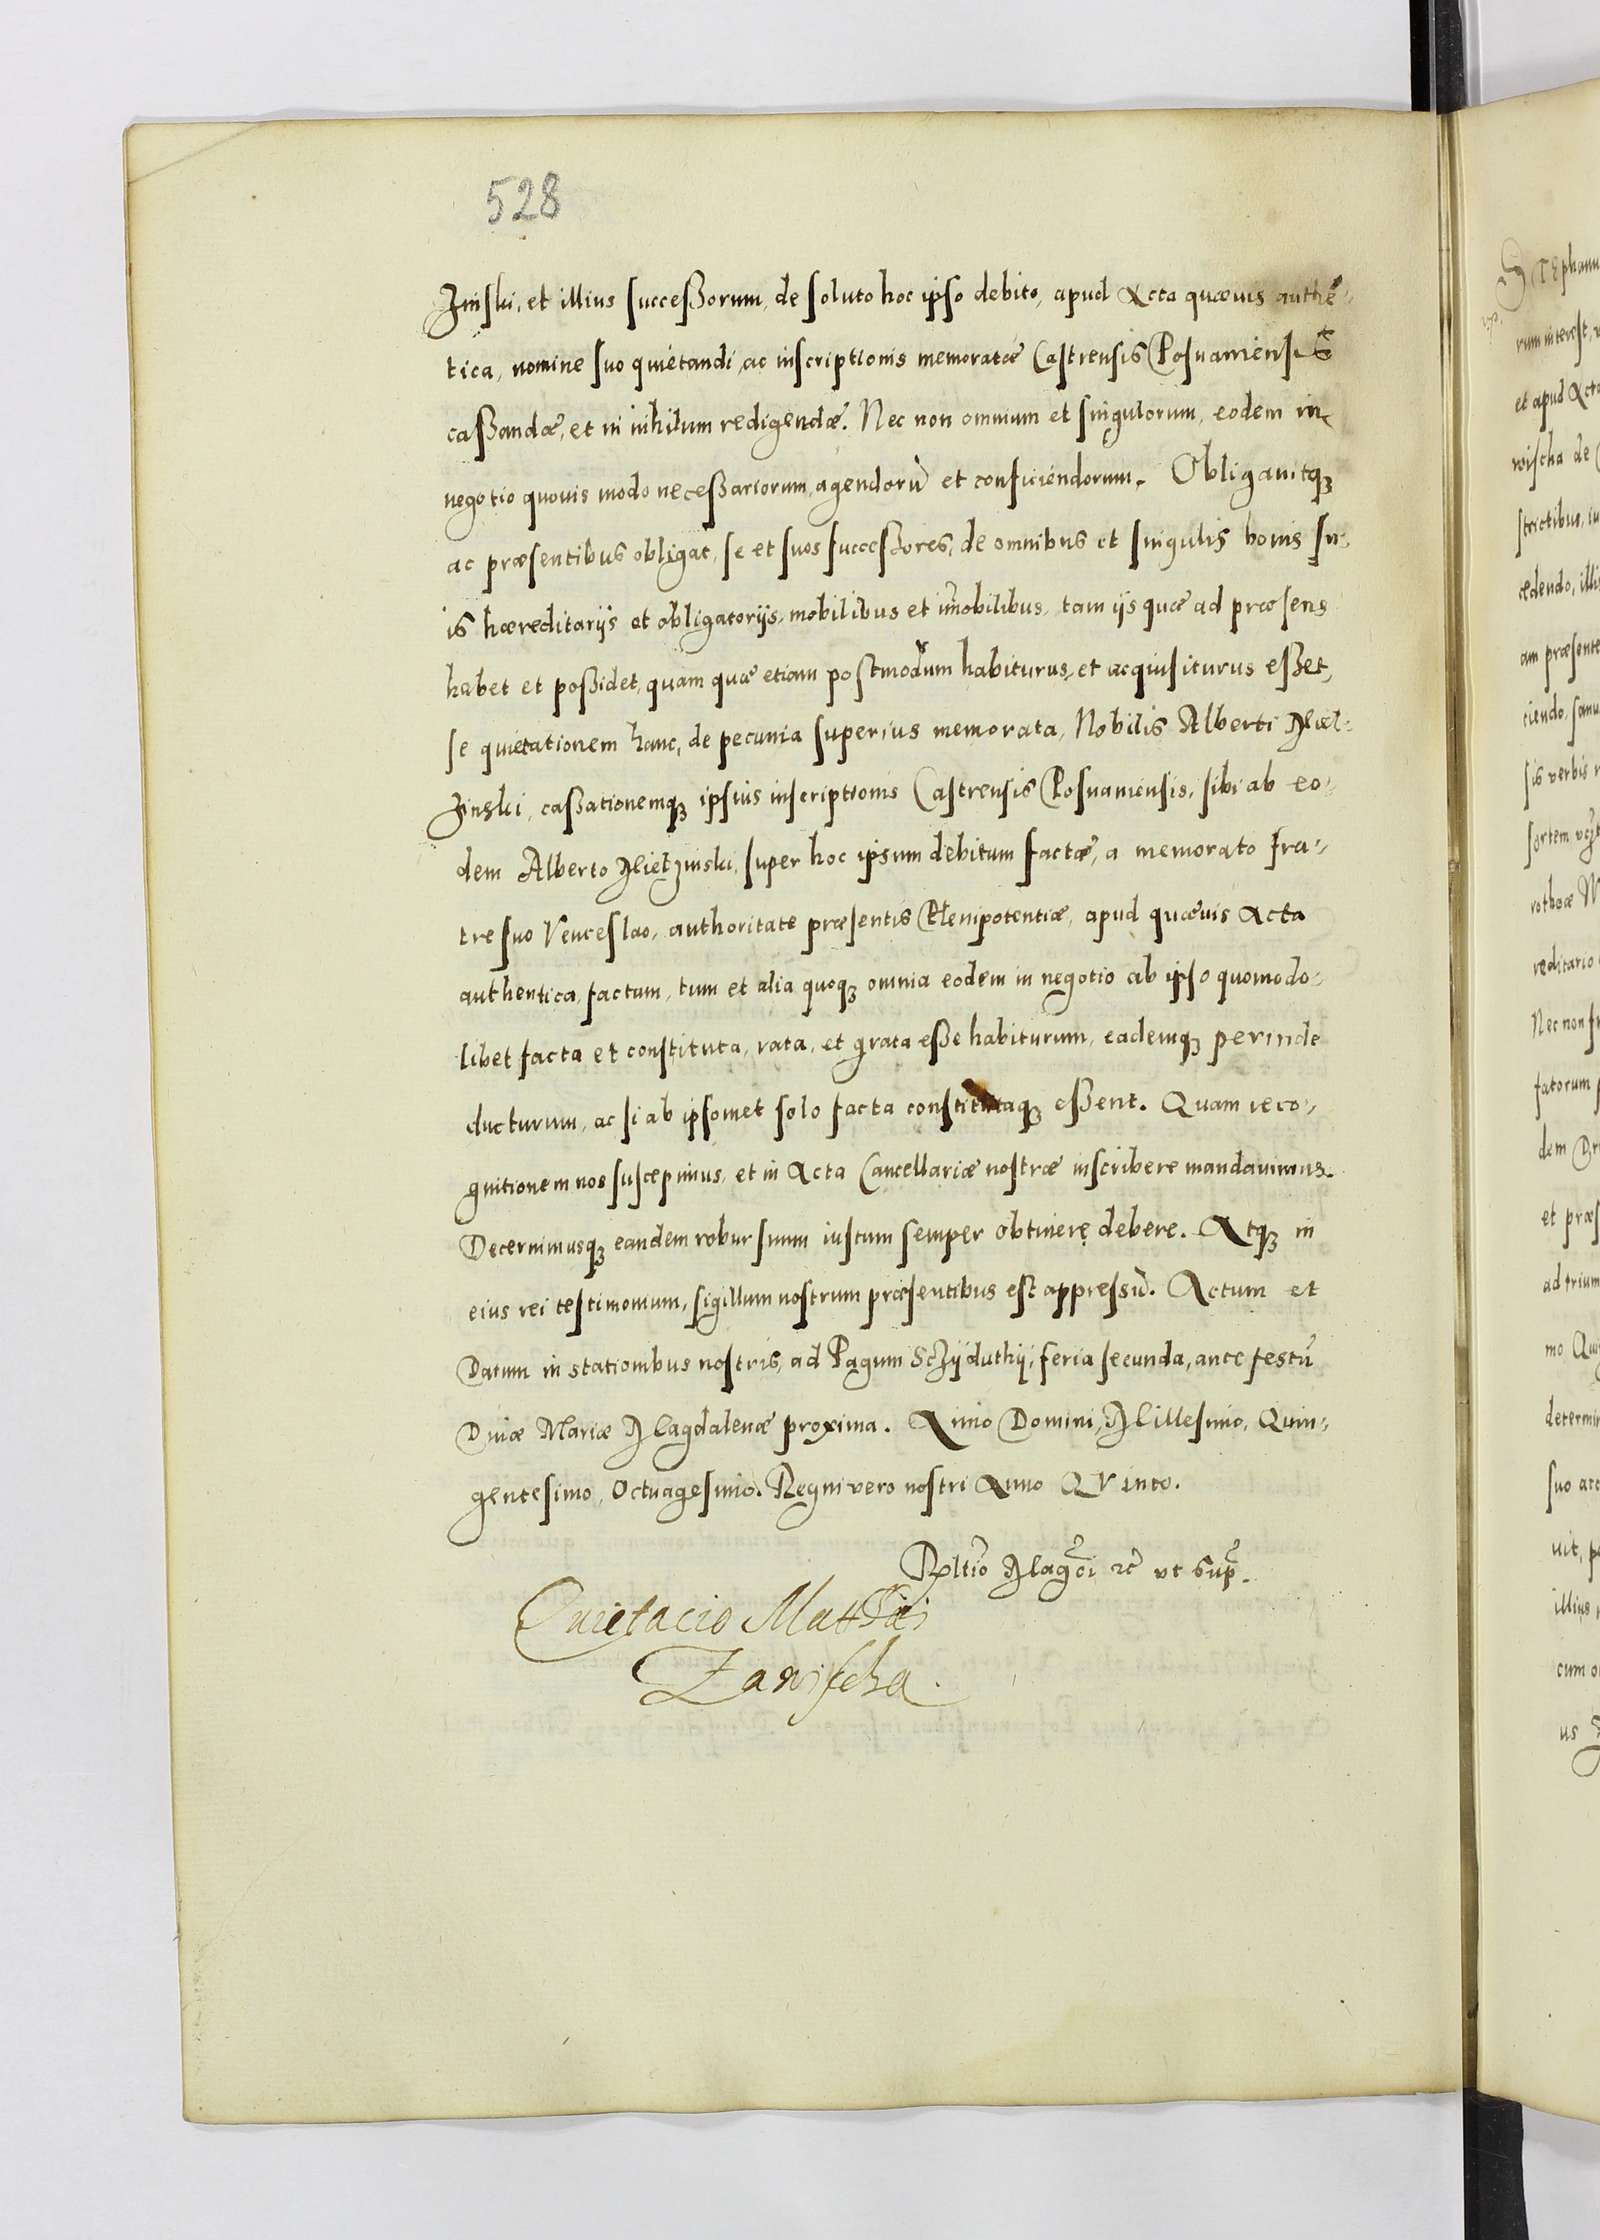 528
zinski, et illius successorum, de soluto hoc ipso debito, apud Acta quævis authē-
tica, nomine suo quietandi, ac inscriptionis memoratæ Castrensis Posnaniensis
cassandæ, et in nihilum redigendæ. Nec non omnium et singulorum, eodem in
negotio quovis modo necessariorum, agendorū et conficiendorum. Obligavitq3
ac præsentibus obligat, se et suos successores, de omnibus et singulis bonis su-
is hæreditarijs et obligatorijs, mobilibus et im̄obilibus, tam ijs quæ ad præsens
habet et possidet, quam quæ etiam postmodum habiturus, et acquisiturus esset,
se quietationem hanc, de pecunia superius memorata, Nobilis Alberti Miel-
zinski, cassationemq3 ipsius inscriptionis Castrensis Posnaniensis, sibi ab eo-
dem Alberto Mielzinski, super hoc ipsum debitum factæ, a memorato fra-
tre suo Venceslao, authoritate præsentis Plenipotentiæ, apud quævis Acta
authentica, factum, tum et alia quoq3 omnia eodem in negotio ab ipso quomodo-
libet facta et constituta, rata, et grata esse habiturum, eademq3 perinde
ducturum, ac si ab ipsomet solo facta constitutaq3 essent. Quam reco-
gnitionem nos suscepimus, et in Acta Cancellariæ nostræ inscribere mandavimus.
Decernimusq3 eandem robur suum iustum semper obtinere debere. Atq3 in
eius rei testimonium, sigillum nostrum præsentibus est appressū. Actum et
Datum in stationibus nostris, ad Pagum Sczÿduthÿ, feria secunda, ante festū
Divæ Mariæ Magdalenæ proxima. Anno Domini, Millesimo, Quin-
gentesimo, Octuagesimo. Regni vero nostri Anno QVinto.
Rltio Magci rc ut sup.
Quietacio Matthæi
Zawischa.